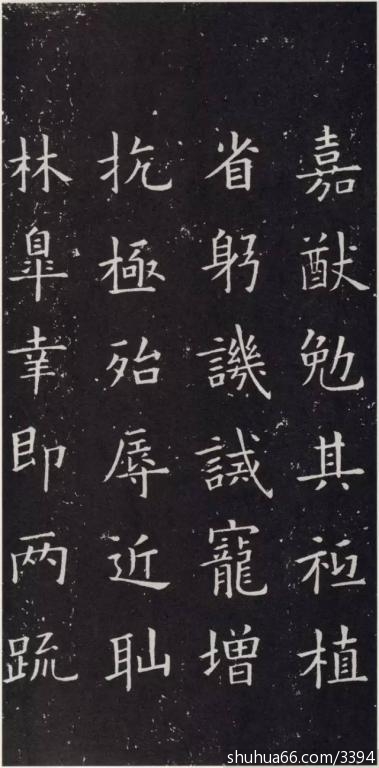 嘉猷勉其祗植
省躬譏誡寵增
抗極殆辱近恥
林皐幸即两疏
shuhua66.com/3394